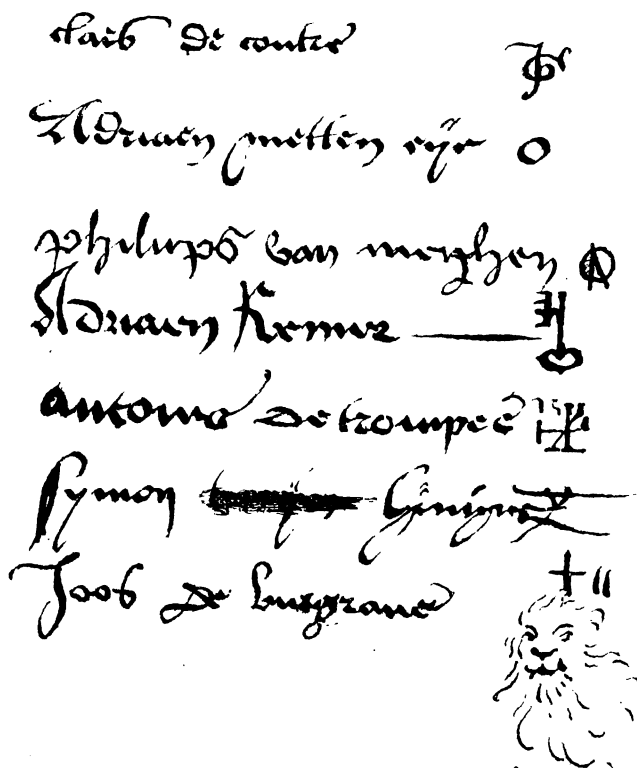 claeis de contre
Adriaen metten eije
philips van meghen
Adriaen Remer
Antonis de trompes
Symon
Joos de burgrave